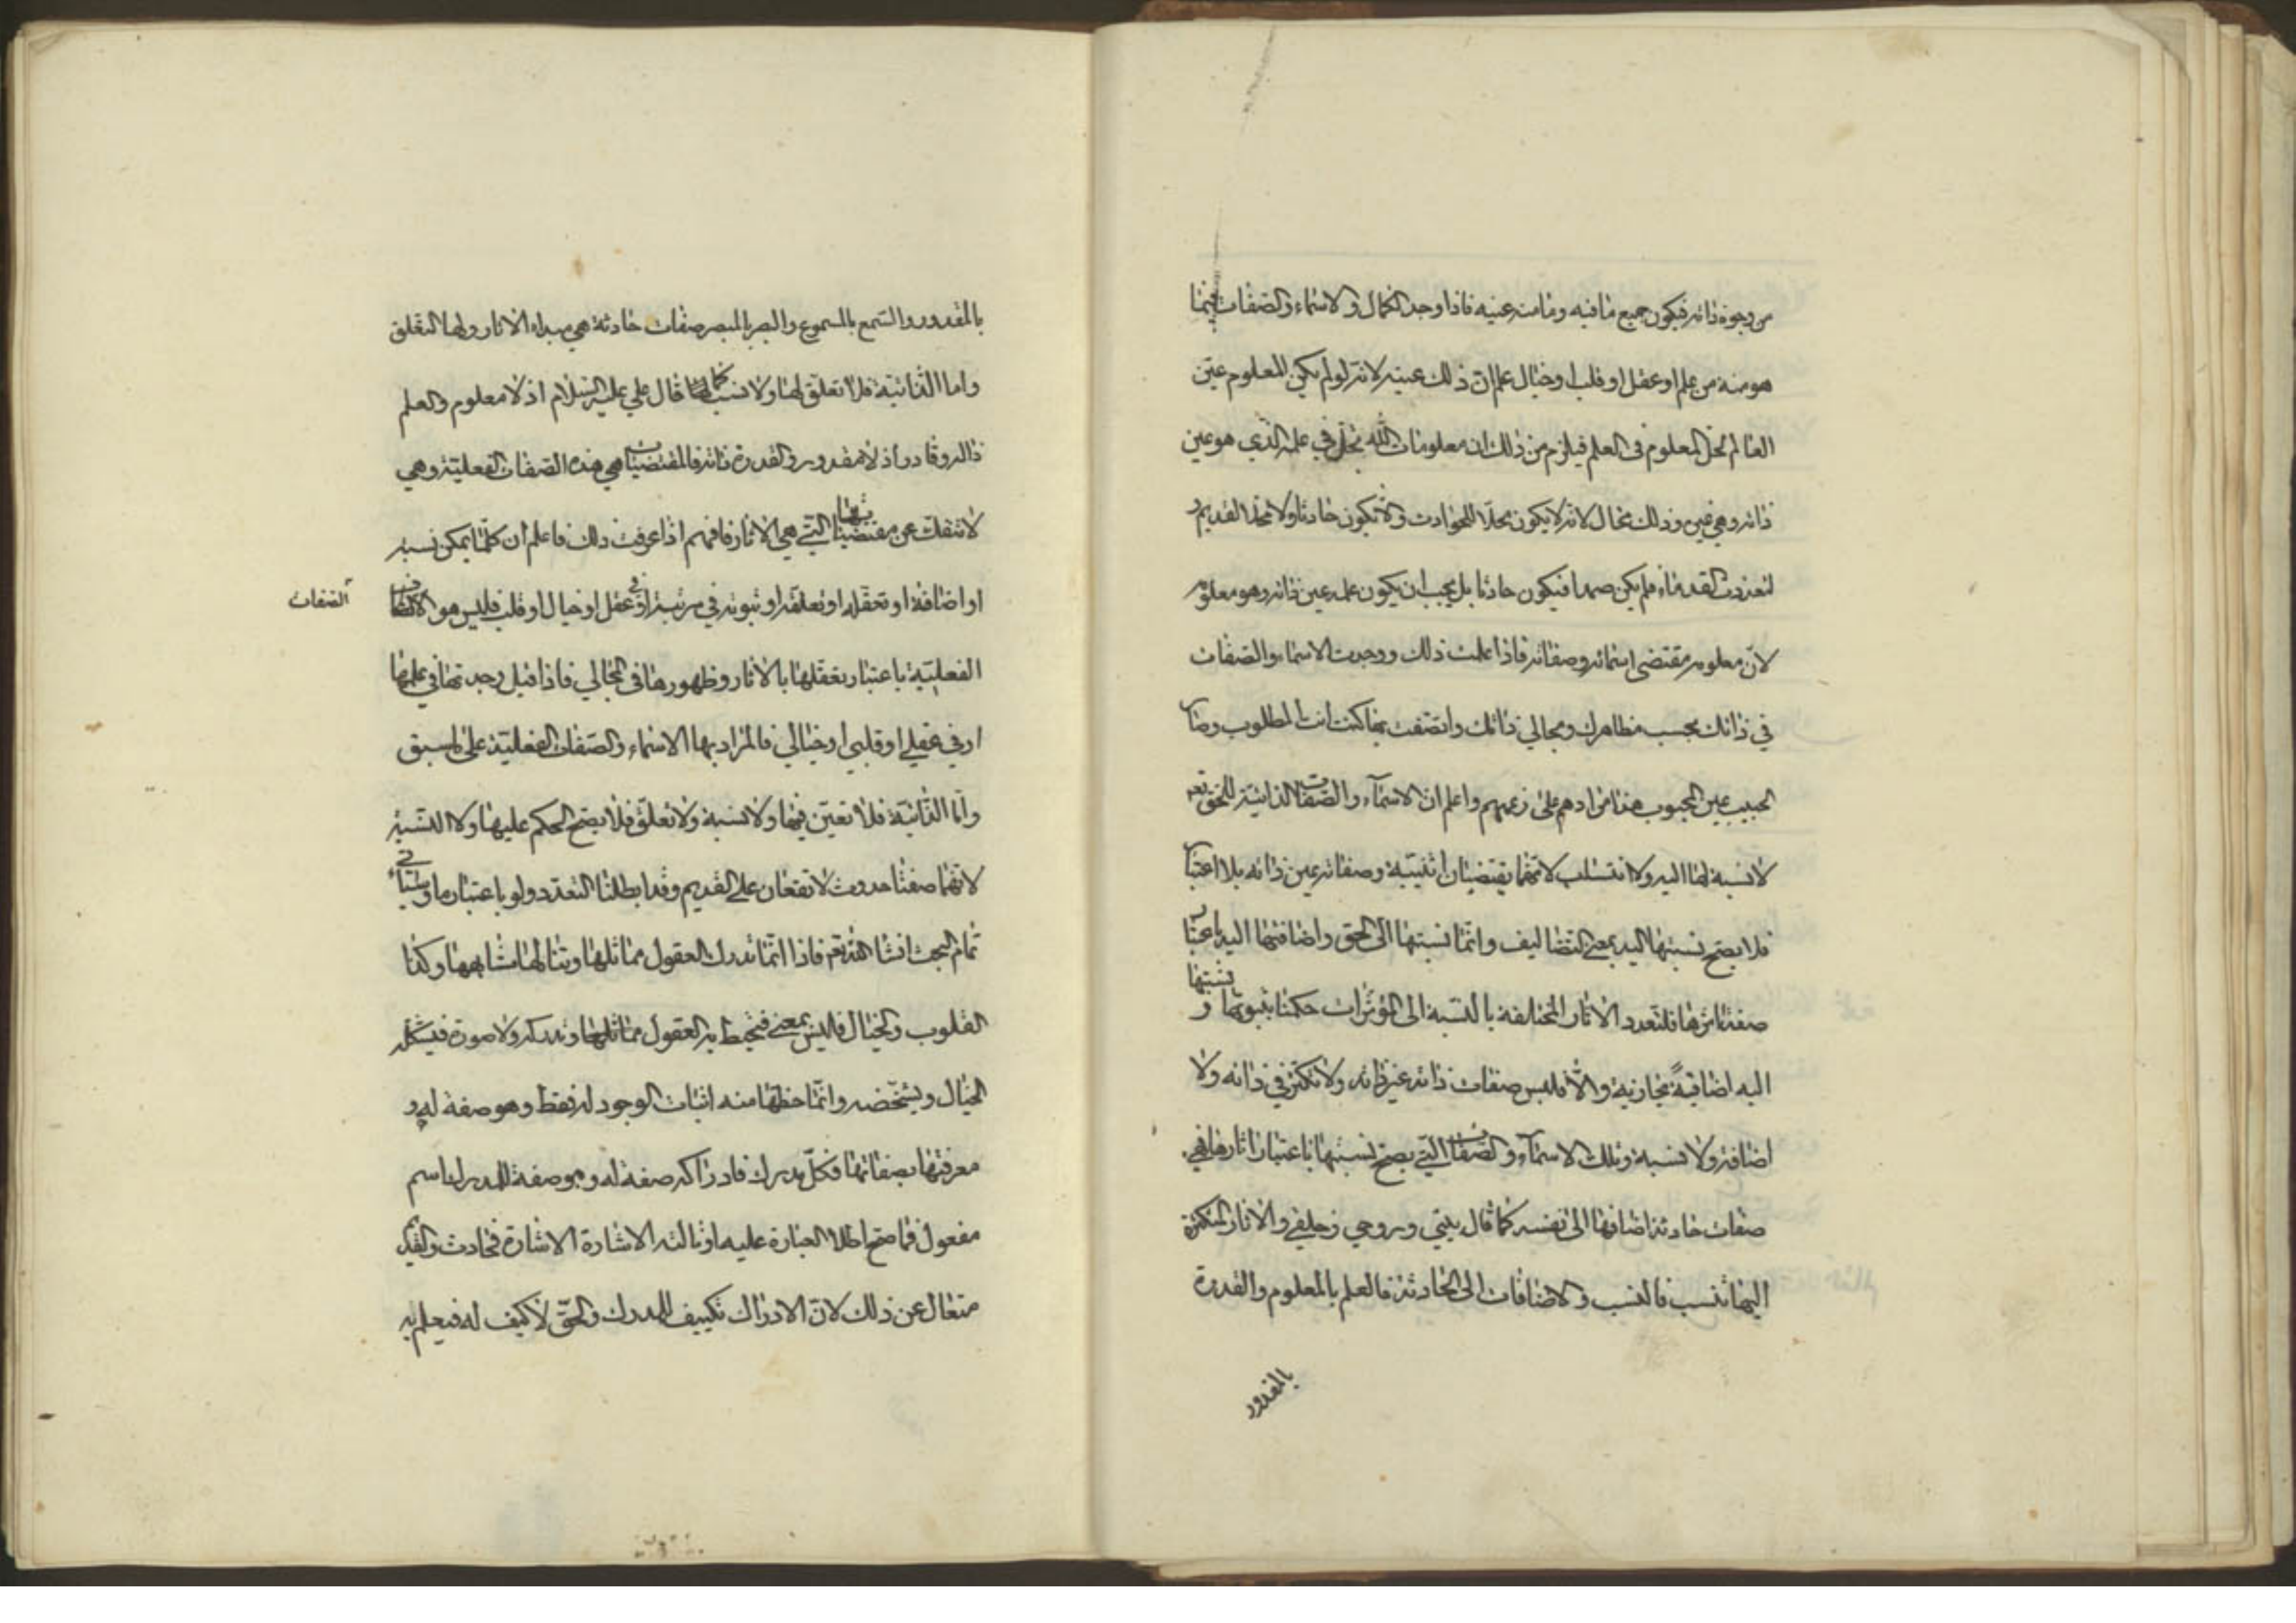 من وجوه ذاته فيكون جميع ما فيه وما منه عنيه فاذا وجد الكمال والاسماء والصفات فيما
هو منه من علم او عقل او قلب او خيال علم ان ذلك عينه لانه لو لم يكن المعلوم عين
العالم لحل المعلوم فى العلم فيلزم من ذلك ان معلومات الله تحل في علمه الذي هو عين
ذاته وهي غير وذلك محال لانه لا يكون محلا للحوادث والا يكون حادثا ولا محلا لقديم و
لتعددت القدماء فلم يكن صمدا فيكون حادثا بل يجب ان يكون علمه عين ذاته وهو معلومه
لان معلومه مقتضى اسمائه وصفاته فاذا علمت ذلك ووجدت الاسماء والصفات
في ذاتك بحسب مظاهرك ومجالي ذاتك واتصفت بها كنت انت المطلوب وصار
الحبيب عين المحبوب هذا مرادهم على زعمهم واعلم ان الاسماء والصفات الذاتية للحق تعم
لا نسبة لها اليه ولا تسلب لانهما يقتضيان اثنينية وصفاته عين ذاته بلا اعتبار
فلا يصح نسبتها اليه بمعنى التضايف وانما نسبتها الى الحق واضافتها اليه باعتبار
صفة اثرها فلتعدد الاثار المختلفة بالنسبة الى المؤثرات حكمنا بثبوتها و نسبتها
اليه اضافية مجازية والا فليس صفات ذاته غير ذاته ولا تكثر في ذاته ولا
اضافة ولا نسبة وتلك الاسماء والصفات التي يصح نسبتها باعتبار اثارها هي
صفات حادثة اضافها الى نفسه كما قال بيتي وروحي وخليفي والاثار المتكثرة
اليها تنسب فالنسب والاضافات الى الحادثة فالعلم بالمعلوم والقدرة
بالمقدور
بالمقدور والسمع بالمسموع والبصر بالمبصر صفات حادثة هي مبداء الاثار ولها التعلق
واما الذاتية فلا تعلق لها ولا نسب كما قال علي عليه السلام اذ لا معلوم والعلم
ذاته وقادر اذ لا مقدور والقدرة ذاته فالمقتضيات هي هذه الصفات الفعلية وهي
لا تنفك عن مقتضياتها التي هي الاثار فافهم اذا عرفت ذلك فاعلم ان كلما يمكن نسبته
او اضافة او تحققه او تعلقه او ثبوته في مرتبة او في عقل او خيال او قلب فليس هو الا الصفات
الصفات
الفعلية باعتبار تعقلها بالاثار وظهورها فى المجالي فاذا قيل وجدتها في علمها
او في عقلي او قلبي او خيالي فالمراد بها الاسماء والصفات الفعلية على ما سبق
واما الذاتية فلا تعين فيها ولا نسبة ولا تعلق فلا يصح الحكم عليها ولا النسبة
لانهما صفتا حدوث لا تقعان على القديم وقد ابطلنا التعدد ولو باعتبار ما وسيأتي
تمام البحث انشا الله تعم فاذا انما تدرك العقول مماثلها وتنالها مشابهها وكذا
القلوب والخيال فاليس بمعنى فتحيط به العقول مماثلها وتدركه ولا صورة فيشكله
الخيال ويشخصه وانما حظها منه اثبات الوجود له فقط وهو صفة له و
معرفتها بصفاتها فكل مدرك فادراكه صفة له وهو صفة للمدرك باسم
مفعول فما صح اطلاق العبارة عليه او نالته الاشارة الاشارة فحادث والقديم
متعال عن ذلك لان الادراك تكييف للمدرك والحق لا كيف له فيعلم به